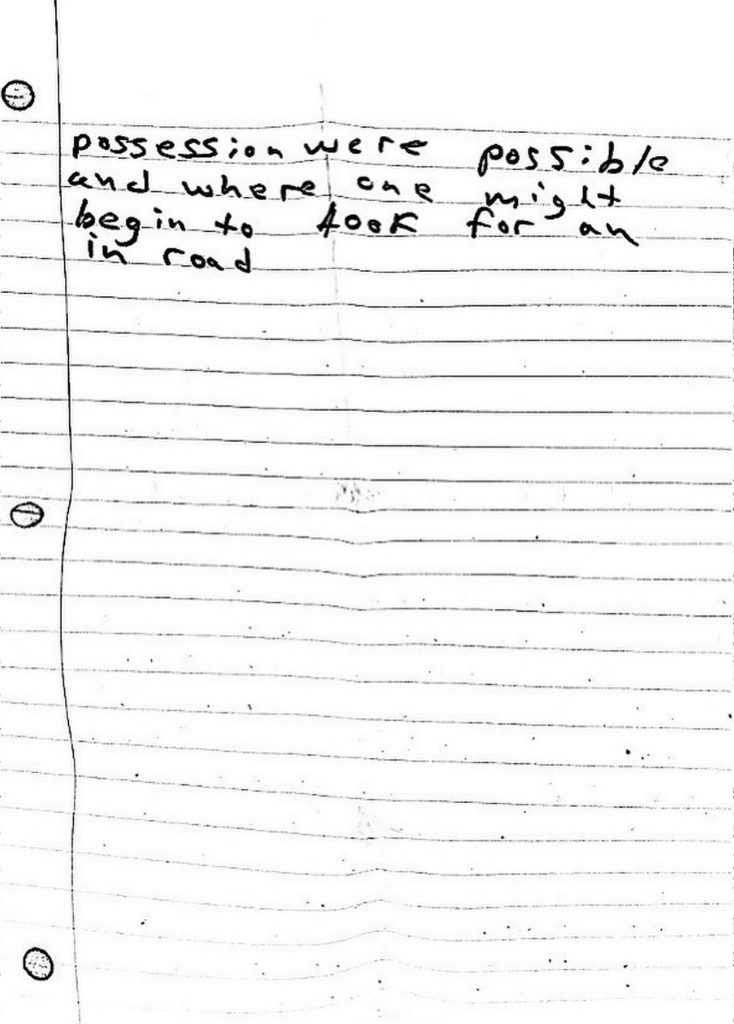 possession were possible
and where one might
begin to look for an
in road